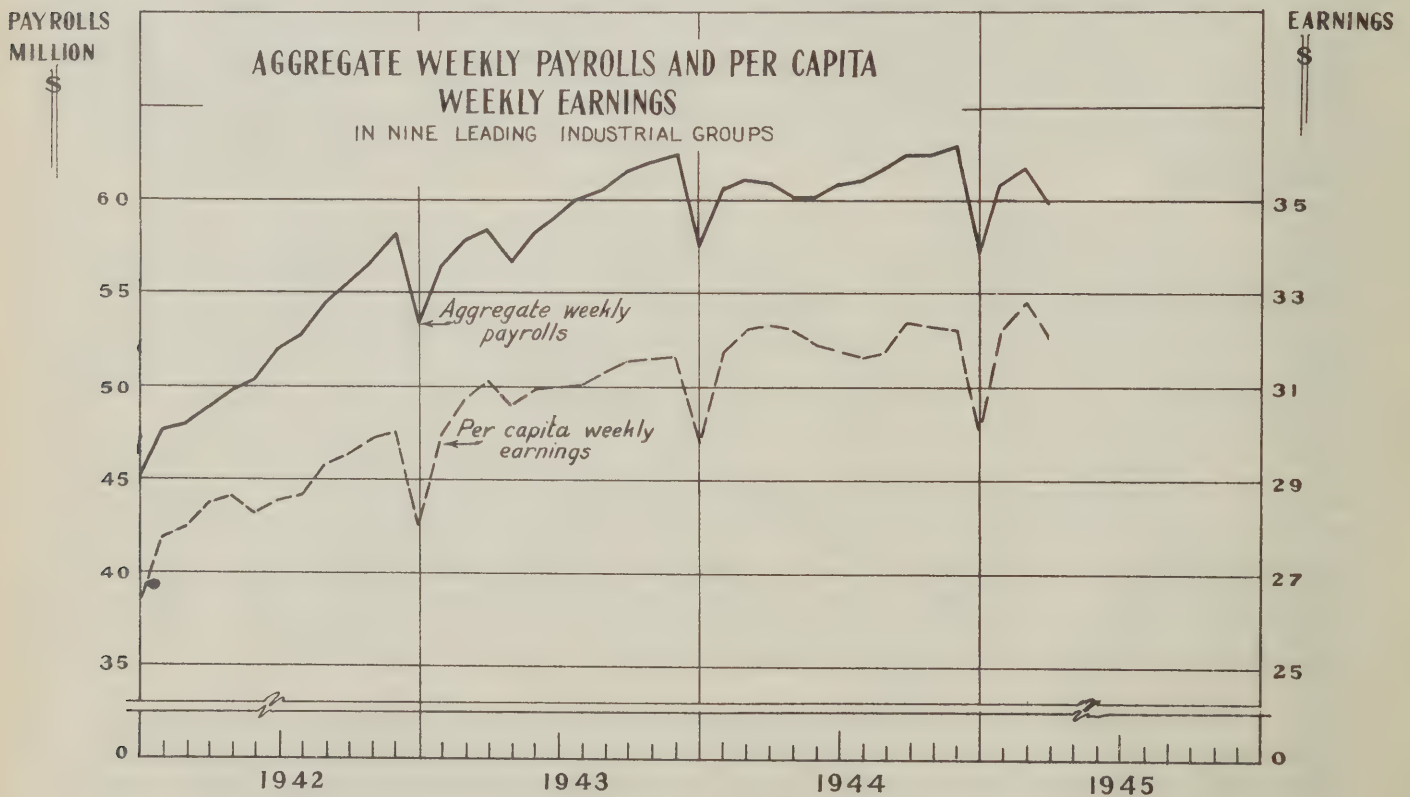 PAYROLLS
MILLION
$
EARNINGS
$
AGGREGATE WEEKLY PAYROLLS AND PER CAPITA
WEEKLY EARNINGS
IN NINE LEADING INDUSTRIAL GROUPS
60
55
50
45
40
35
0
35
33
31
29
27
25
0
Aggregate weekly
payrolls
Per capita weekly
earnings
1942
1943
1944
1945